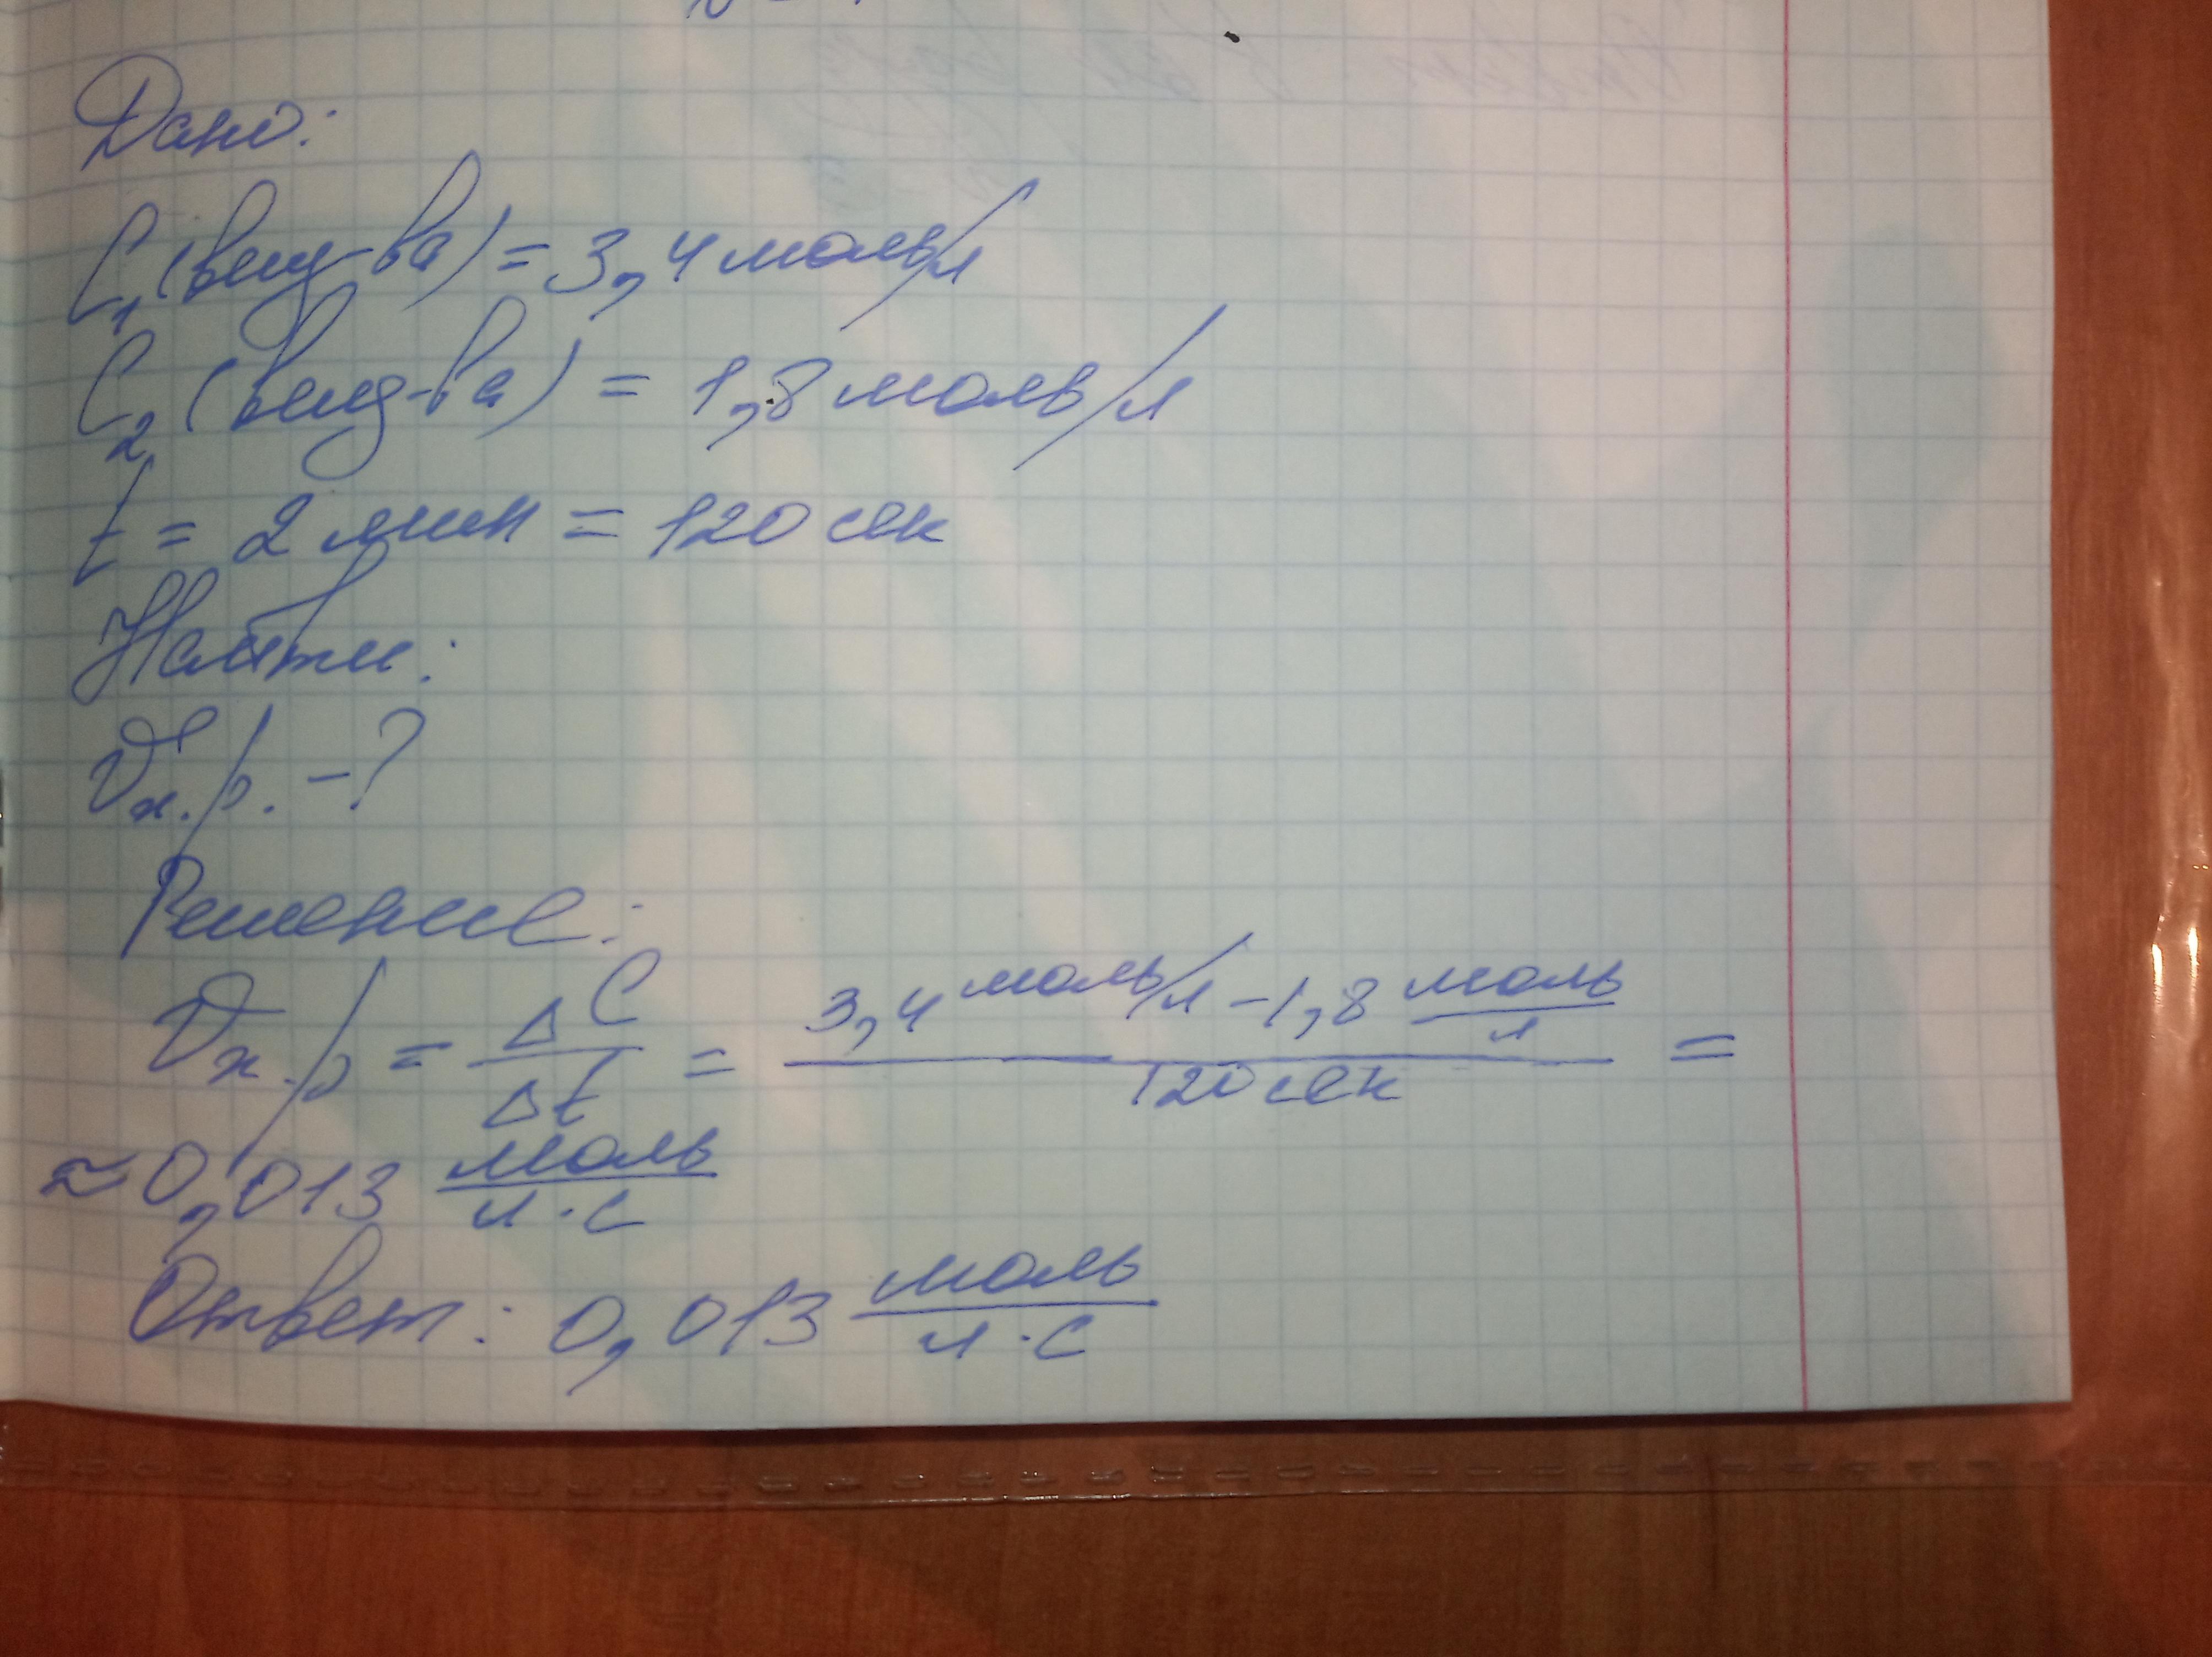 Дано:
C₁(вещ-ва) = 3,4 моль/л
C₂(вещ-ва) = 1,8 моль/л
t = 2 мин = 120 сек
Найти:
υх.р. - ?
Решение:
υх.р = ΔC/Δt = (3,4 моль/л - 1,8 моль/л)/120 сек =
≈ 0,013 моль/л·с
Ответ: 0,013 моль/л·с